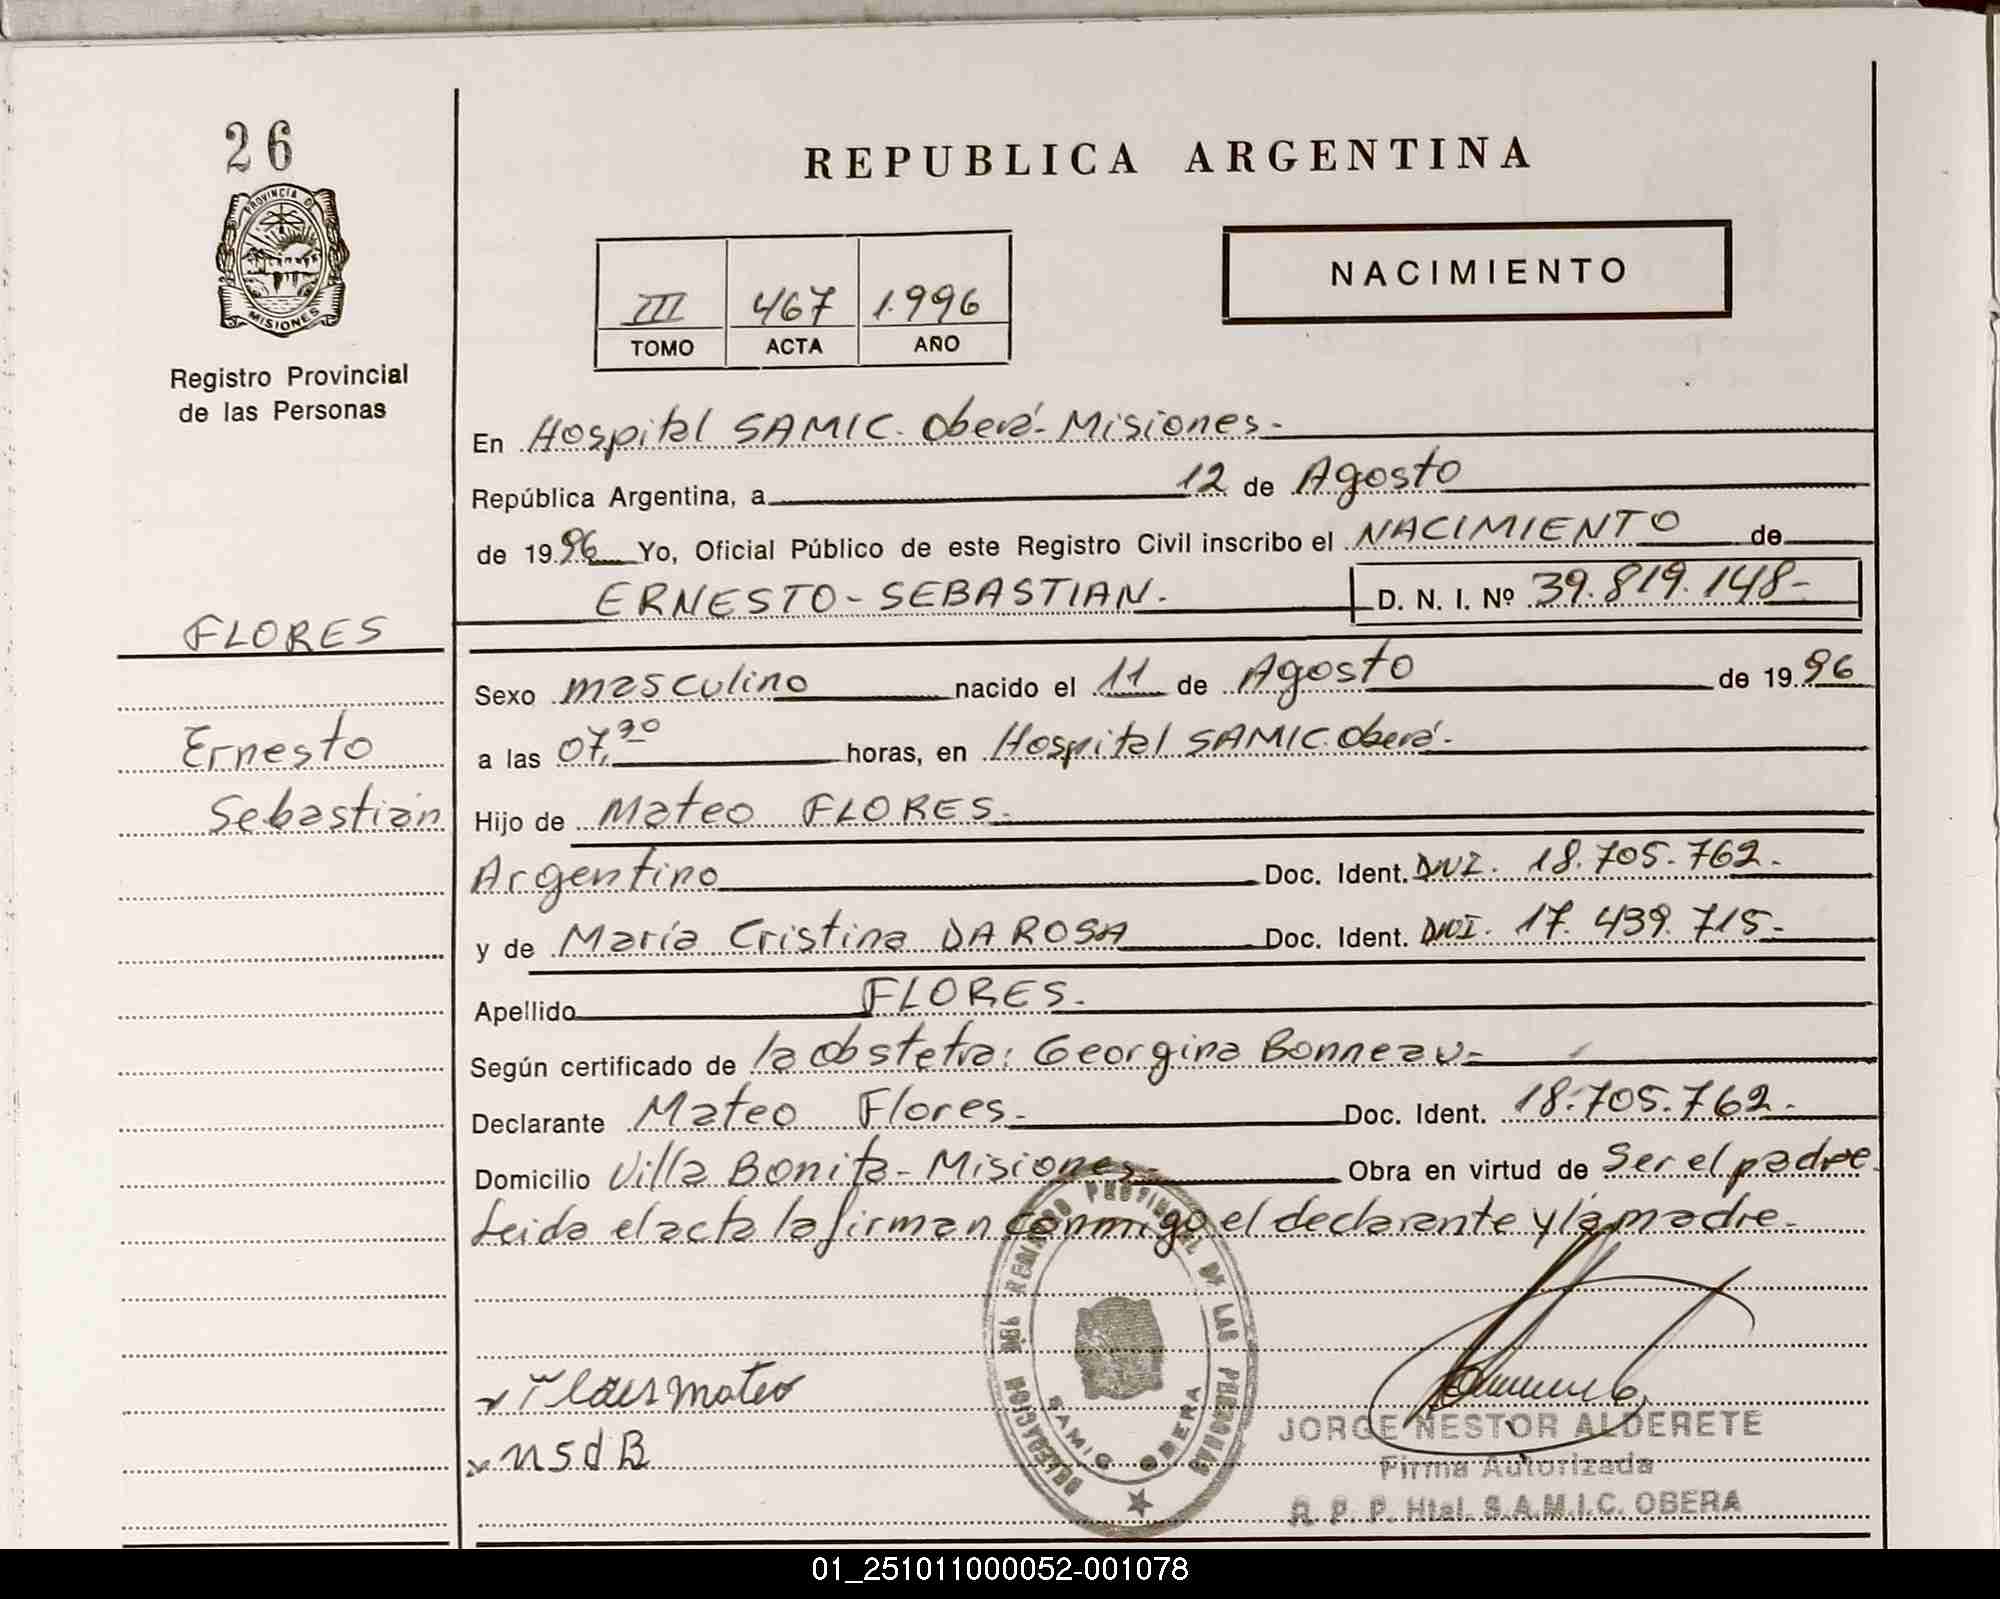 26
PROVINCIA D
MISIONES
Registro Provincial
de las Personas
REPUBLICA ARGENTINA
NACIMIENTO
III 467 1.996
TOMO ACTA AÑO
En Hospital SAMIC. Oberá- Misiones-
República Argentina, a 12 de Agosto
de 19 96 Yo, Oficial Público de este Registro Civil inscribo el NACIMIENTO de
ERNESTO-SEBASTIAN. D. N. I. Nº 39.819.148-
FLORES
Ernesto
Sebastián
Sexo masculino nacido el 11 de Agosto de 19 96
a las 07,30 horas, en Hospital SAMIC. Oberá-
Hijo de Mateo FLORES.
Argentino Doc. Ident. DNI. 18.705.762.
y de María Cristina DA ROSA Doc. Ident. DNI. 17.439.715-
Apellido FLORES.
Según certificado de la obstetra: Georgina Bonneau-
Declarante Mateo Flores- Doc. Ident. 18.705.762-
Domicilio Villa Bonita-Misiones- Obra en virtud de Ser el padre
Leida el acta la firman conmigo el declarante y la madre-
DELEGACION DEL REGISTRO PROVINCIAL DE LAS PERSONAS
SAMIC OBERA
mateo
JORGE NESTOR ALDERETE
Firma Autorizada
R. P. P. Htal. S.A.M.I.C. OBERA
01_251011000052-001078